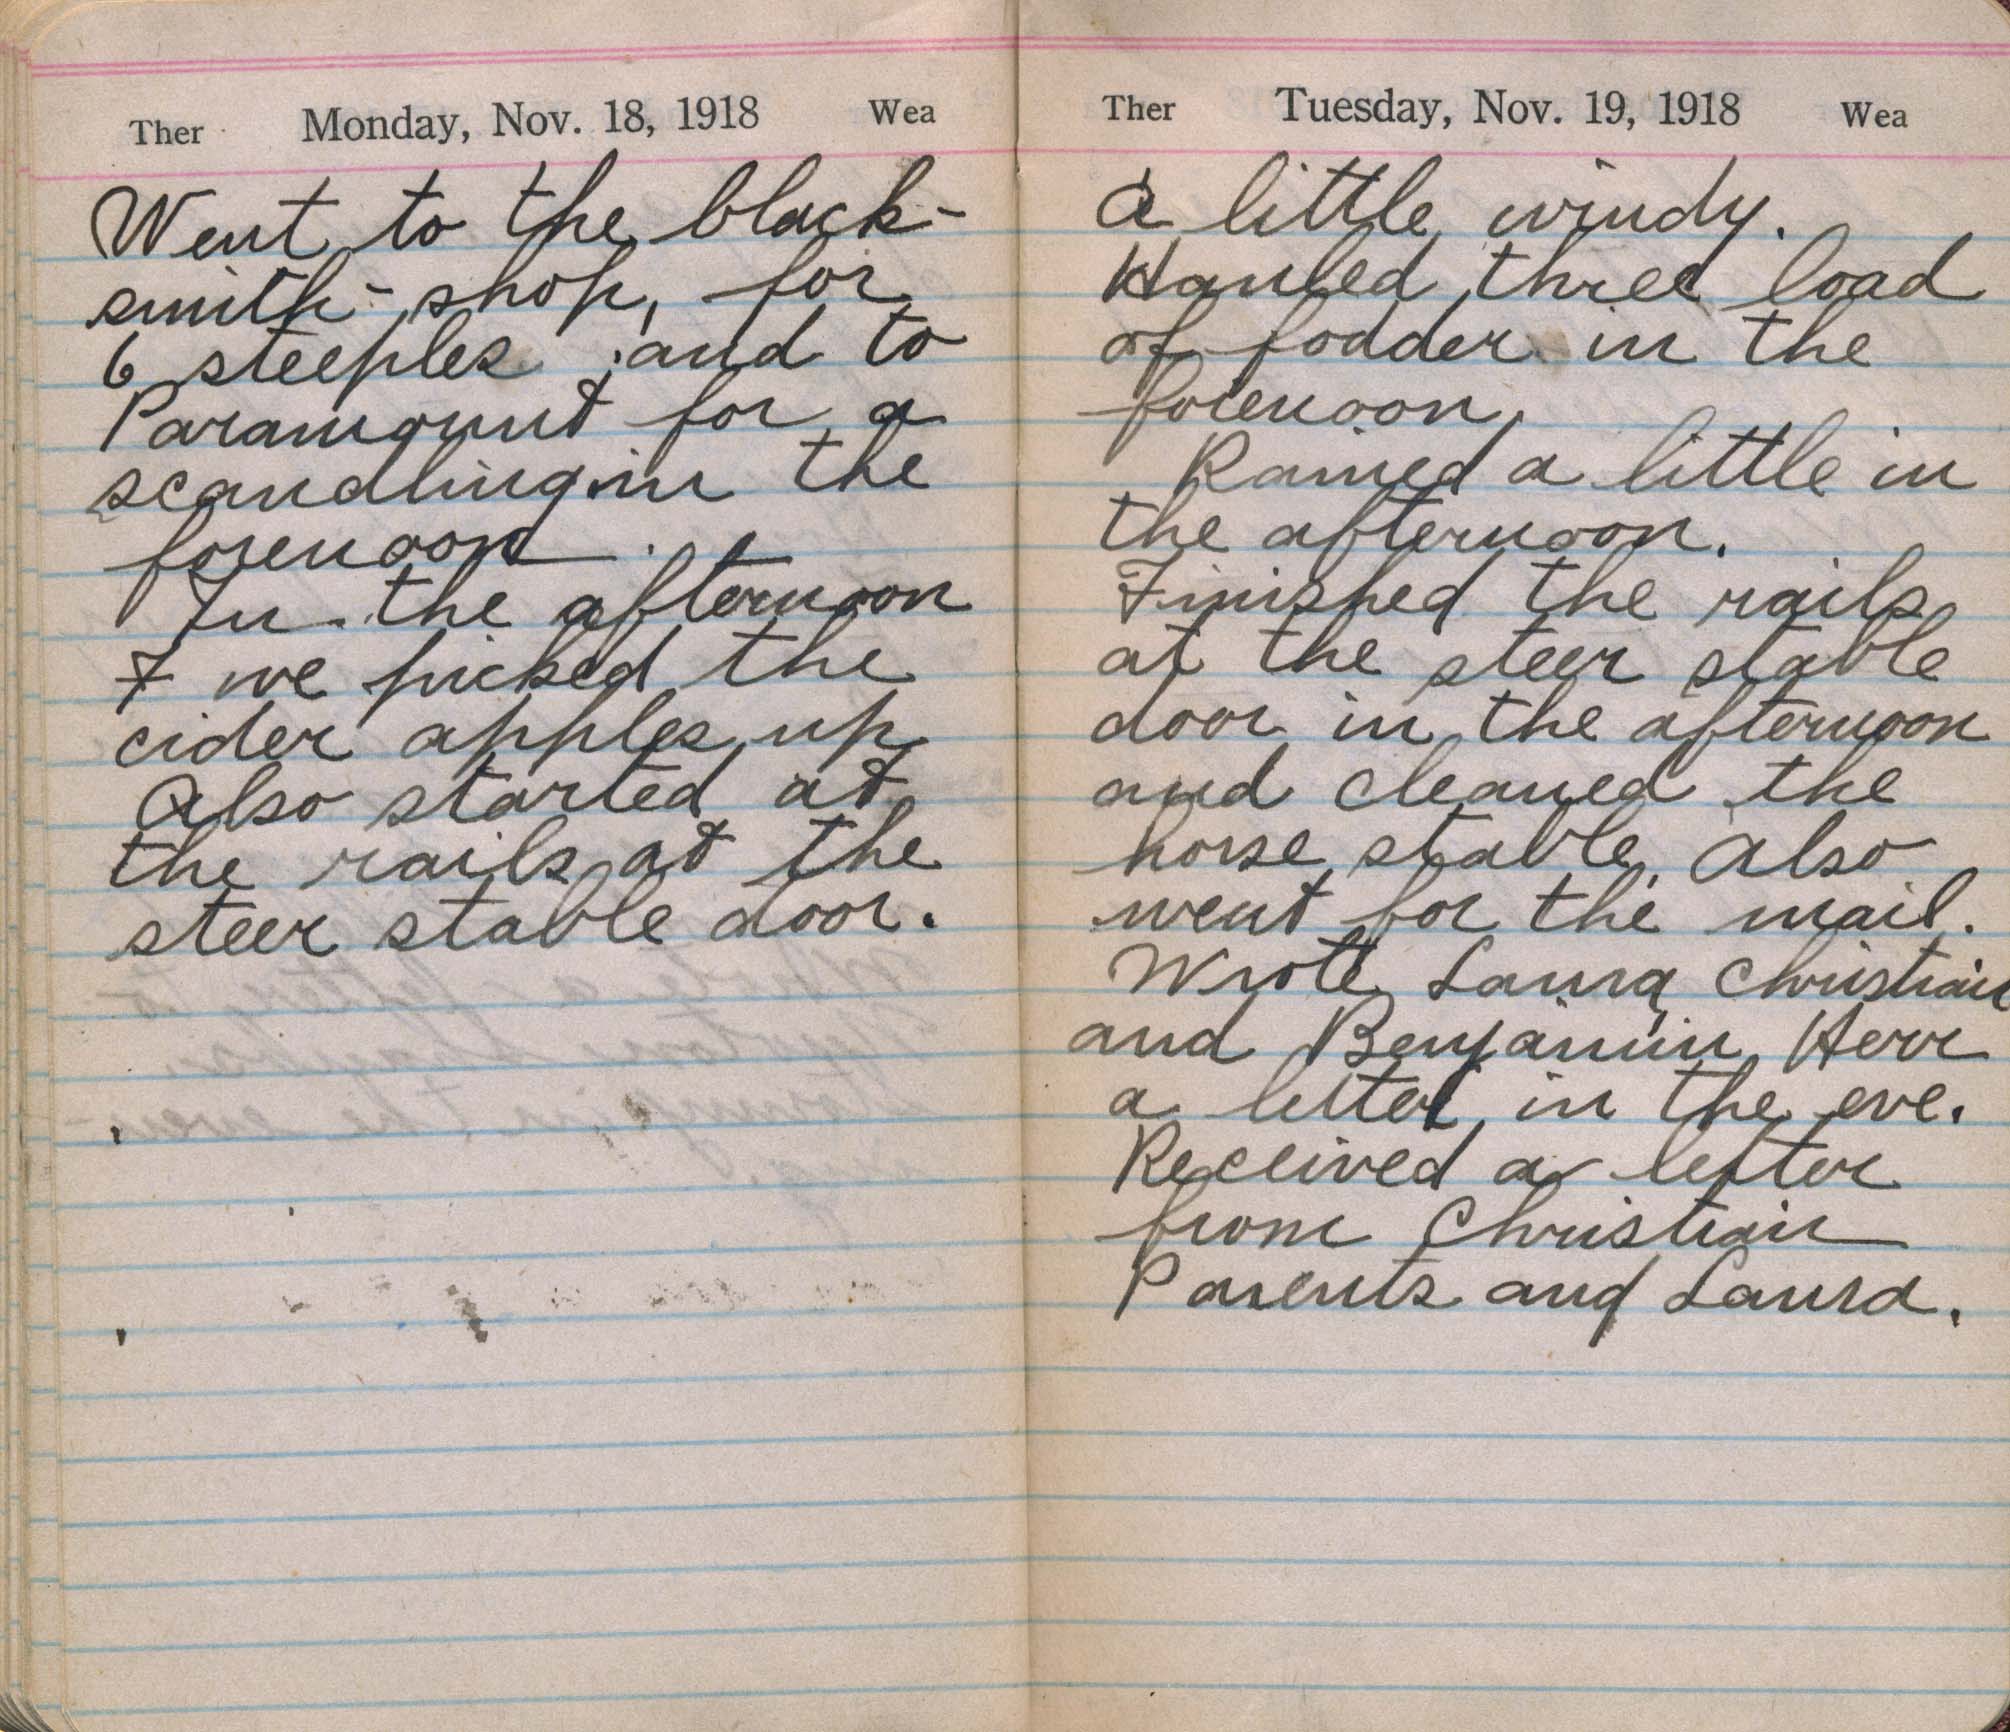 Ther Monday, Nov. 18, 1918 Wea
Went to the black-
smith-shop, for
6 steeples and to
Paramount for a
scandling in the
forenoon.
In the afternoon
F we picked the
cider apples up
Also started at
the rails at the
steer stable door.
Ther Tuesday, Nov. 19, 1918 Wea
A little windy.
Hauled three load
of fodder in the
forenoon.
Rained a little in
the afternoon.
Finished the rails
at the steer stable
door in the afternoon
and cleaned the
horse stable. Also
went for the mail.
Wrote Laura Christian
and Benjamin Herr
a letter in the eve.
Received a letter
from Christian
Parents and Laura.